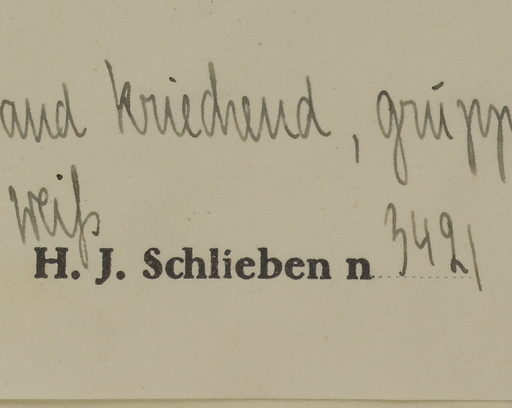 and kriechend, grupp
weiß
H. J. Schlieben n 3421